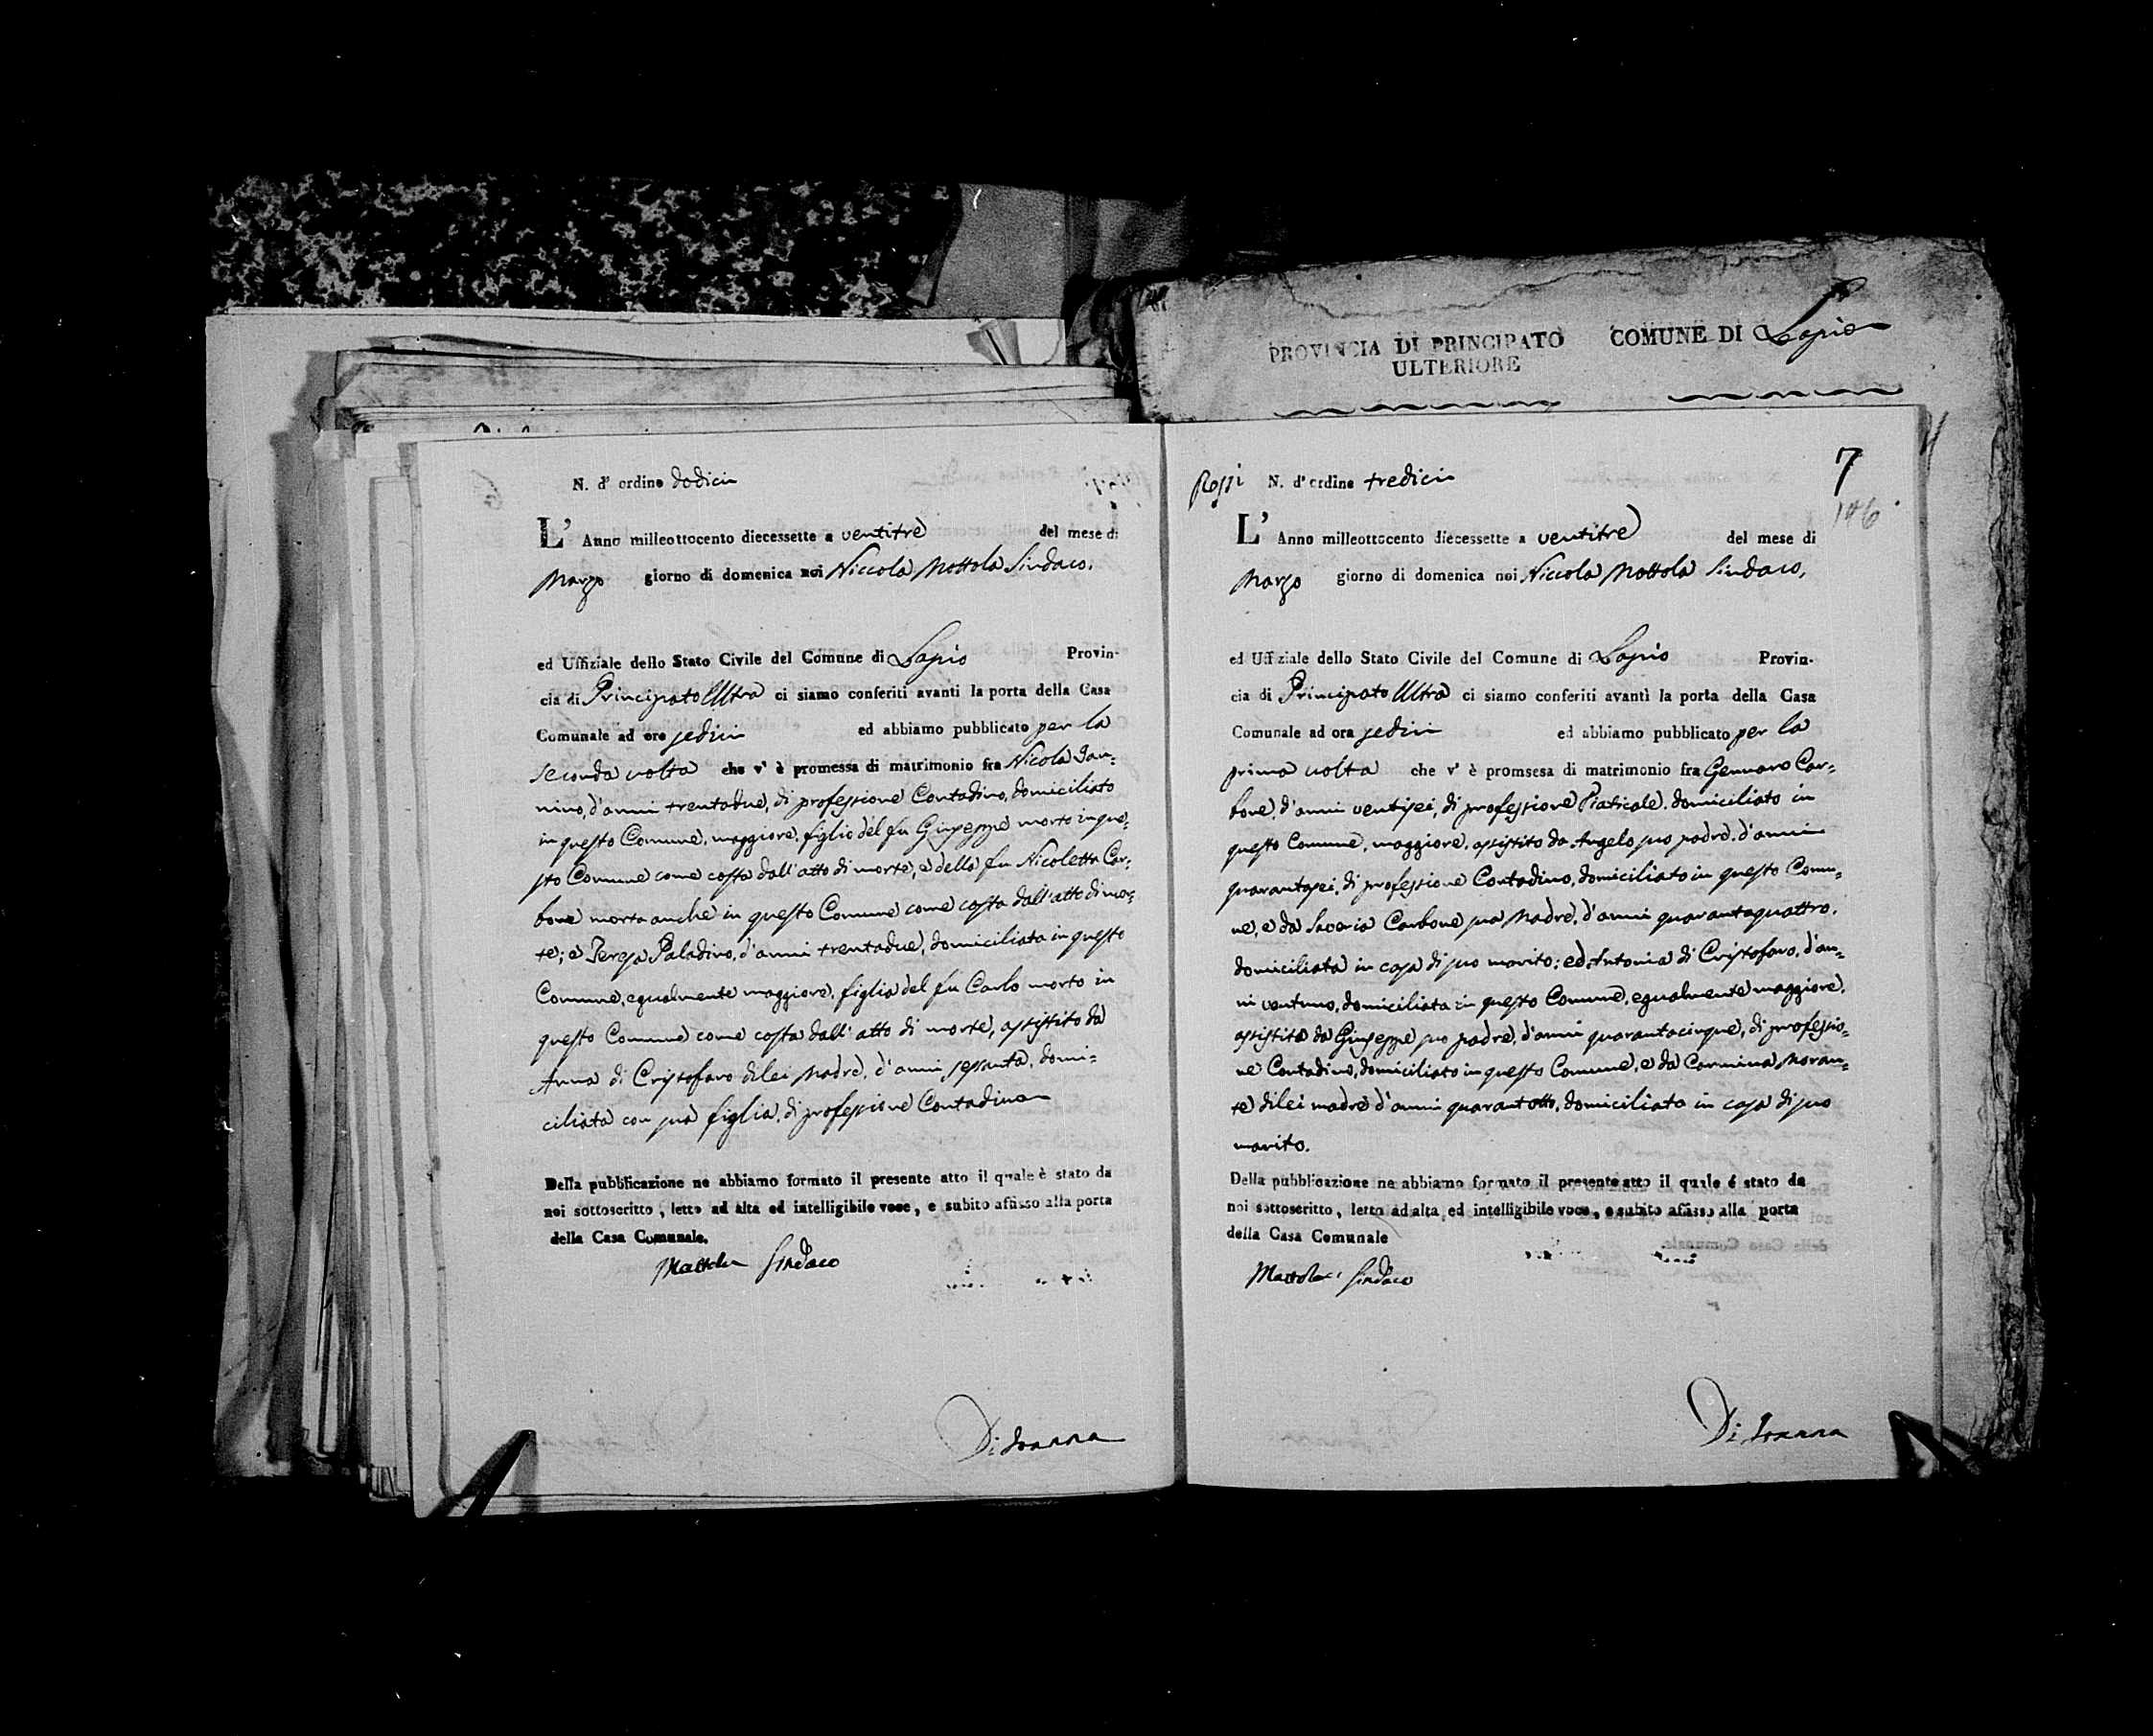 PROVINCIA DI PRINCIPATO
ULTERIORE
COMUNE DI Lapio
N. d' ordine dodici
L' Anno milleottocento diecessette a ventitre del mese di
Marzo giorno di domenica noi Niccola Mottola Sindaco,
ed Uffiziale dello Stato Civile del Comune di Lapio Provin-
cia di Principato Ultra ci siamo conferiti avanti la porta della Casa
Comunale ad ore sedici ed abbiamo pubblicato per la
seconda volta che v' è promessa di matrimonio fra Nicola Ian=
nino, d'anni trentadue, di professione Contadino, domiciliato
in questo Comune, maggiore, figlio del fu Giuseppe morto in que=
sto Comune come costa dall'atto di morte, e della fu Nicoletta Car=
bone morta anche in questo Comune come costa dall'atto di mor=
te; e Teresa Paladino, d'anni trentadue, domiciliata in questo
Comune, egualmente maggiore, figlia del fu Carlo morto in
questo Comune come costa dall'atto di morte, assistito da
Anna di Cristofaro di lei Madre, d'anni sessanta, domi=
ciliata con sua figlia, di professione Contadina
Della pubblicazione ne abbiamo formato il presente atto il quale è stato da
noi sottoscritto, letto ad alta ed intelligibile voce, e subito affisso alla porta
della Casa Comunale.
Mottola Sindaco
Di Ioanna
7
146
N. d' ordine tredici
L' Anno milleottocento diecessette a ventitre del mese di
Marzo giorno di domenica noi Niccola Mottola Sindaco,
ed Uffiziale dello Stato Civile del Comune di Lapio Provin-
cia di Principato Ultra ci siamo conferiti avanti la porta della Casa
Comunale ad ora sedici ed abbiamo pubblicato per la
prima volta che v' è promsesa di matrimonio fra Gennaro Car=
bone, d'anni ventisei, di professione domiciliato in
questo Comune, maggiore, assistito da Angelo suo padre, d'anni
quarantasei, di professione Contadino, domiciliato in questo Comu=
ne, e da Saveria Carbone sua Madre, d'anni quarantaquattro,
domiciliata in casa di suo marito; ed Antonia di Cristofaro, d'an=
ni ventuno, domiciliata in questo Comune, egualmente maggiore,
assistita da Giuseppe suo padre, d'anni quarantacinque, di professio=
ne Contadino, domiciliato in questo Comune, e da Carmina Moran=
te di lei madre d'anni quarantotto, domiciliata in casa di suo
marito.
Della pubblicazione ne abbiamo formato il presente atto il quale é stato da
noi sottoscritto, letto ad alta, ed intelligibile voce, e subito affisso alla porta
della Casa Comunale
Mottola Sindaco
Di Ioanna